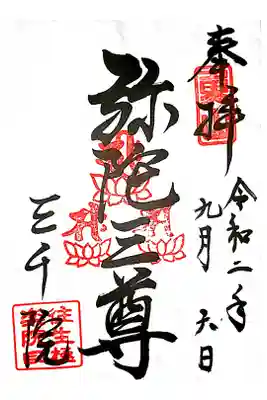 奉拝
令和二年
九月六日
弥陀三尊
三千院